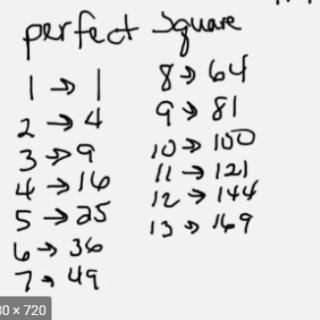 perfect Square
1 → 1
2 → 4
3 → 9
4 → 16
5 → 25
6 → 36
7 → 49
8 → 64
9 → 81
10 → 100
11 → 121
12 → 144
13 → 169
0 × 720